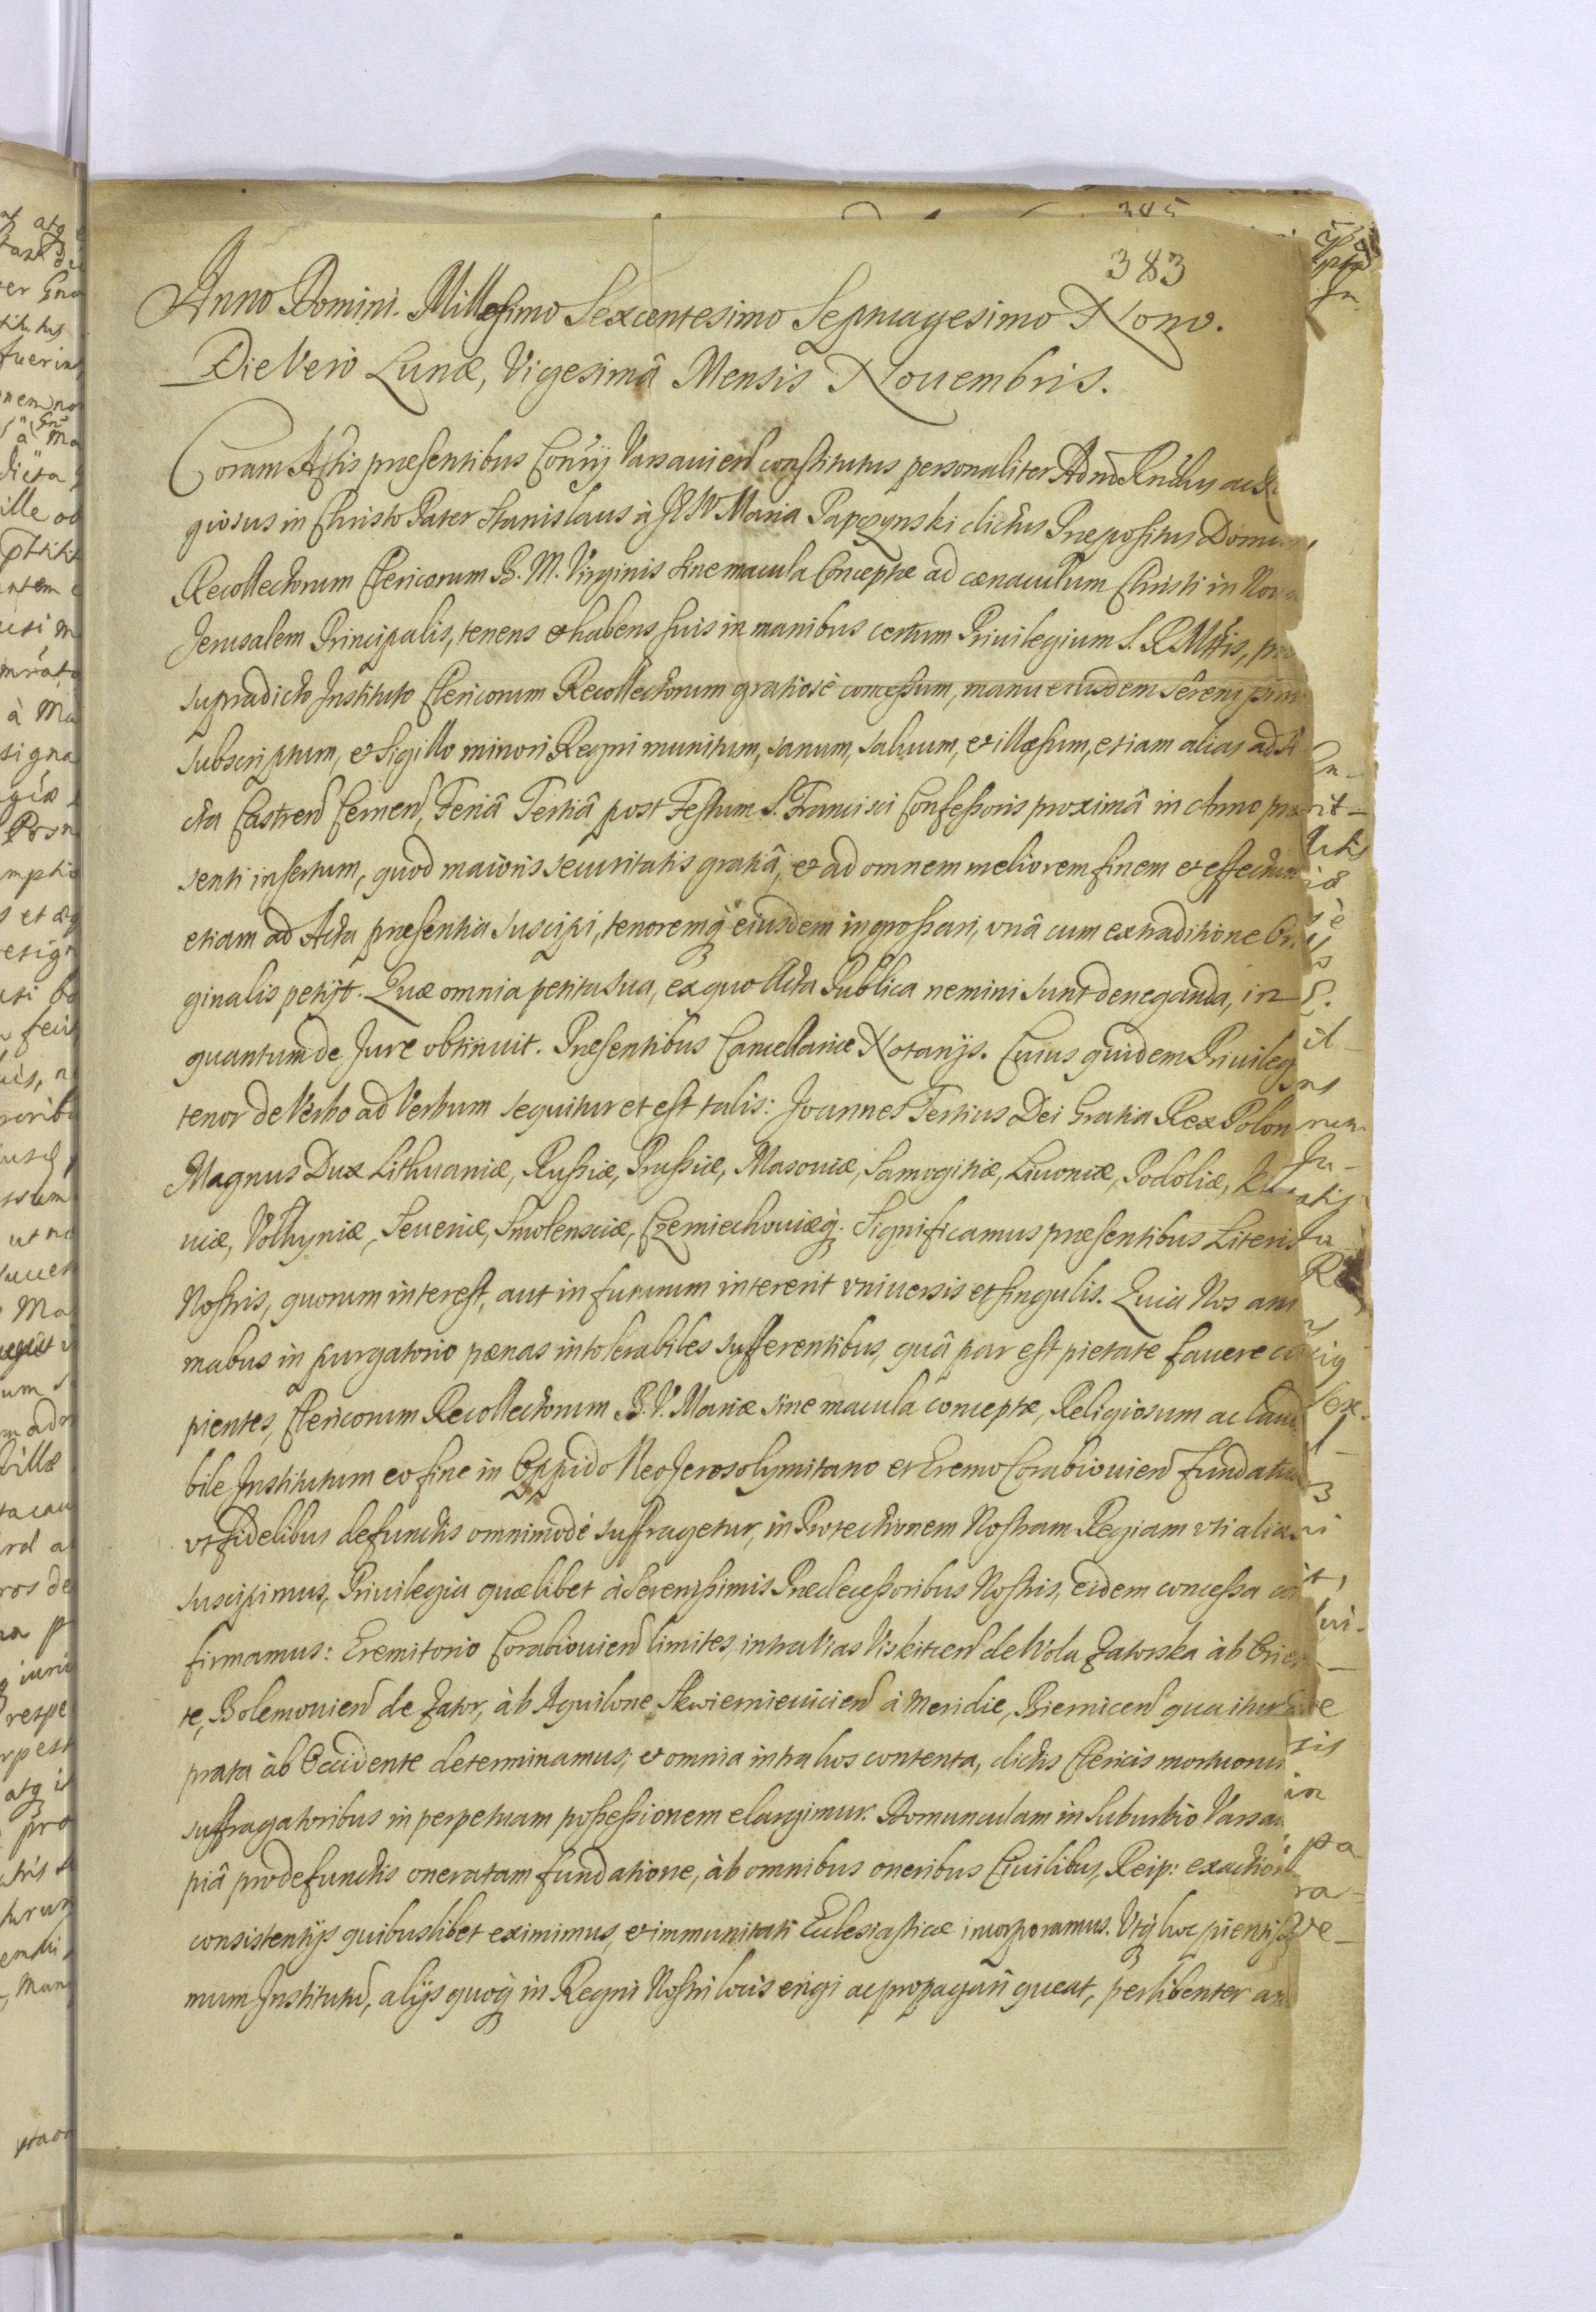 345
383
Anno Domini. Millesimo Sexcentesimo Septuagesimo Nono.
Die Verò Lunæ, Vigesimâ Mensis Nouembris.
Coram Actis præsentibus Cons̄rij Varsauieñ constitutus personaliter Adm̄ Rn̄dus ac
giosus in Christo Pater Stanislaus à JESV Maria Papczynski dictus Præpositus Domus
Recollectorum Clericorum B. M. Virginis sine macula Conceptæ ad cænaculum Christi in Noua
Jerusalem Principalis, tenens et habens suis in manibus certum Priuilegium S. R. Mttis, pro
supradicto Instituto Clericorum Recollectorum gratiosè concessum, manu eiusdem Serenissimi
subscriptum, et Sigillo minori Regni munitum, sanum, saluum, et illæsum, etiam alias ad A
cta Castreñ Cerneñ, Feriâ Tertiâ post Festum S. Francisci Confessoris proximâ in Anno præ
senti insertum, quod maioris securitatis gratiâ, et ad omnem meliorem finem et effectum
etiam ad Acta præsentia suscipi, tenoremq̀ eiusdem ingrossari, vnâ cum extraditione Ori
ginalis petijt. Quæ omnia petita sua, ex quo Acta Publica nemini sunt deneganda, in
quantum de Jure obtinuit. Præsentibus Cancellariæ Notarijs. Cuius quidem Priuileg
tenor de Verbo ad Verbum sequitur et est talis: Joannes Tertius Dei Gratia Rex Polon
Magnus Dux Lithuaniæ, Russiæ, Prussiæ, Masouiæ, Samogitiæ, Liuoniæ, Podoliæ, Kij
uiæ, Volhyniæ, Seueriæ, Smolensciæ, Czerniechouiæq̀. Significamus præsentibus Literis
Nostris, quorum interest, aut in futurum intererit vniuersis et singulis. Quia Nos ani
mabus in purgatorio pænas intolerabiles sufferentibus, quâ par est pietate fauere cu
pientes, Clericorum Recollectorum B. V. Mariæ sine macula conceptæ, Religiosum ac lauda
bile Institutum eo fine in Oppido NeoJerosolymitano et Eremo Corabiouieñ fundatum
vt fidelibus defunctis omnimodè suffragetur, in Protectionem Nostram Regiam vti alias
suscipimus, Priuilegia quælibet à Serenissimis Prædecessoribus Nostris, eidem concessa con
firmamus: Eremitorio Corabiouieñ limites, intra Vias Viskitieñ de Wola Zatorska àb Orien
te, Bolemouieñ de Zator, àb Aquilone, Skwierniewicieñ à Meridie, Bierniceñ qua itur
prata àb Occidente determinamus; et omnia intra hos contenta, dictis Clericis mortuorum
suffragatoribus in perpetuam possessionem elargimur. Domunculam in Suburbio Varsau
piâ pro defunctis oneratam fundatione, àb omnibus oneribus Ciuilibus, Reip: exaction
consistentijs quibuslibet eximimus, et immunitati Ecclesiasticæ incorporamus. Vtq̀ hoc pientiss
mum Institutū, alijs quoq̀ in Regni Nostri locis erigi ac propagari queat, perlibenter an